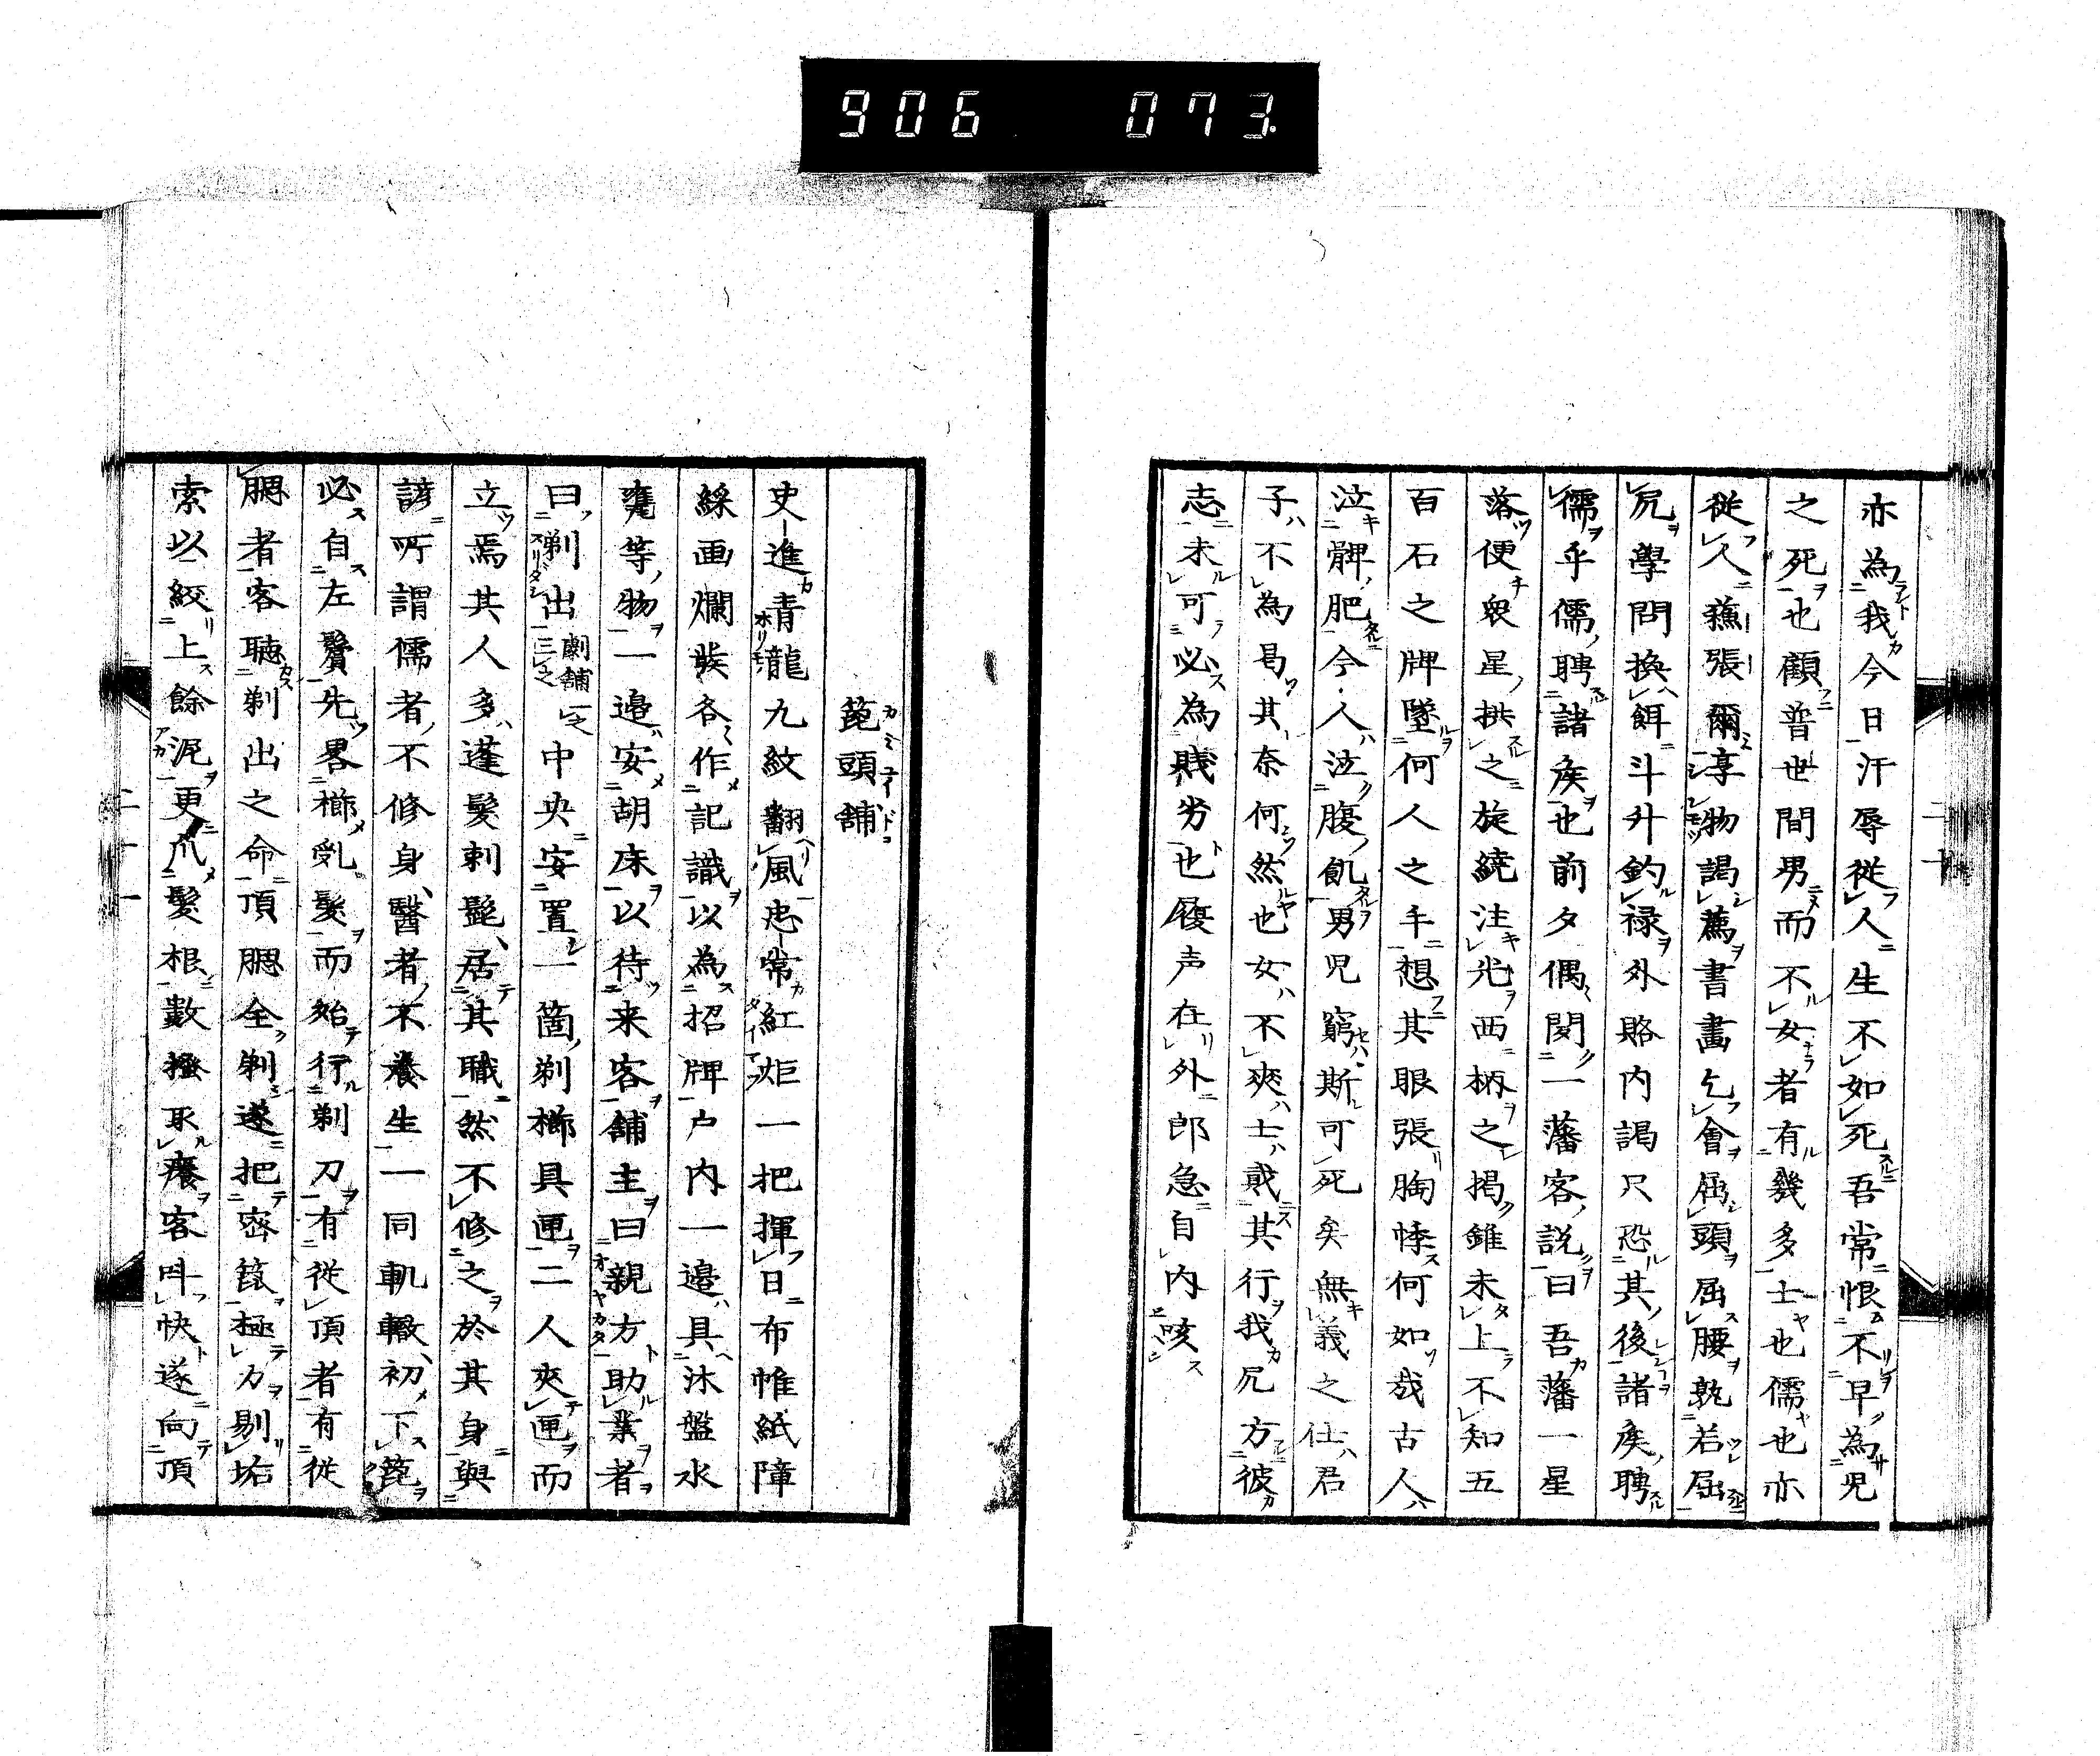 906 073
亦為我今日汗辱従人生不如死吾常恨不早為児
之死也顧普世間男而不女者有幾多士也儒也亦
従人蘓張爾享物謁薦書畵乞會屈頭屈腰孰若屈
尻學問換餌斗升釣禄外賂内謁尺恐其後諸矦聘
儒乎儒聘諸矦也前夕偶閔一藩客説曰吾藩一星
落便衆星拱之旋繞注光西柄之掲錐未上不知五
百石之牌墜何人之手想其眼張胸悸何如哉古人
泣髀肥今人泣腹飢男児窮斯可死矣無義之仕君
子不為曷其奈何然也女不爽士貳其行我尻方彼
志未可必為賤劣也履声在外郎急自内咳
二十
箆頭舗
史進青龍九紋翻風忠常紅炬一把揮日布帷紙障
綵画爛装各作記識以為招牌戸内一邉具沐盤水
甕等物一邉安胡床以待来客舗主曰親方助業者
曰剃出劇舗三之一之中央安置一箇剃櫛具匣二人夾匣而
立焉其人多蓬髪刺髭居其職然不修之於其身與
諺所謂儒者不修身醫者不養生一同軌轍初下箆
必自左鬢先畧櫛乱髪而始行剃刀有従頂者有従
腮者客聴剃出之命頂腮全剃遂把宻箆極力剔垢
索以絞上餘泥更爪髪根數搔取癢客呌快遂向頂
二十一